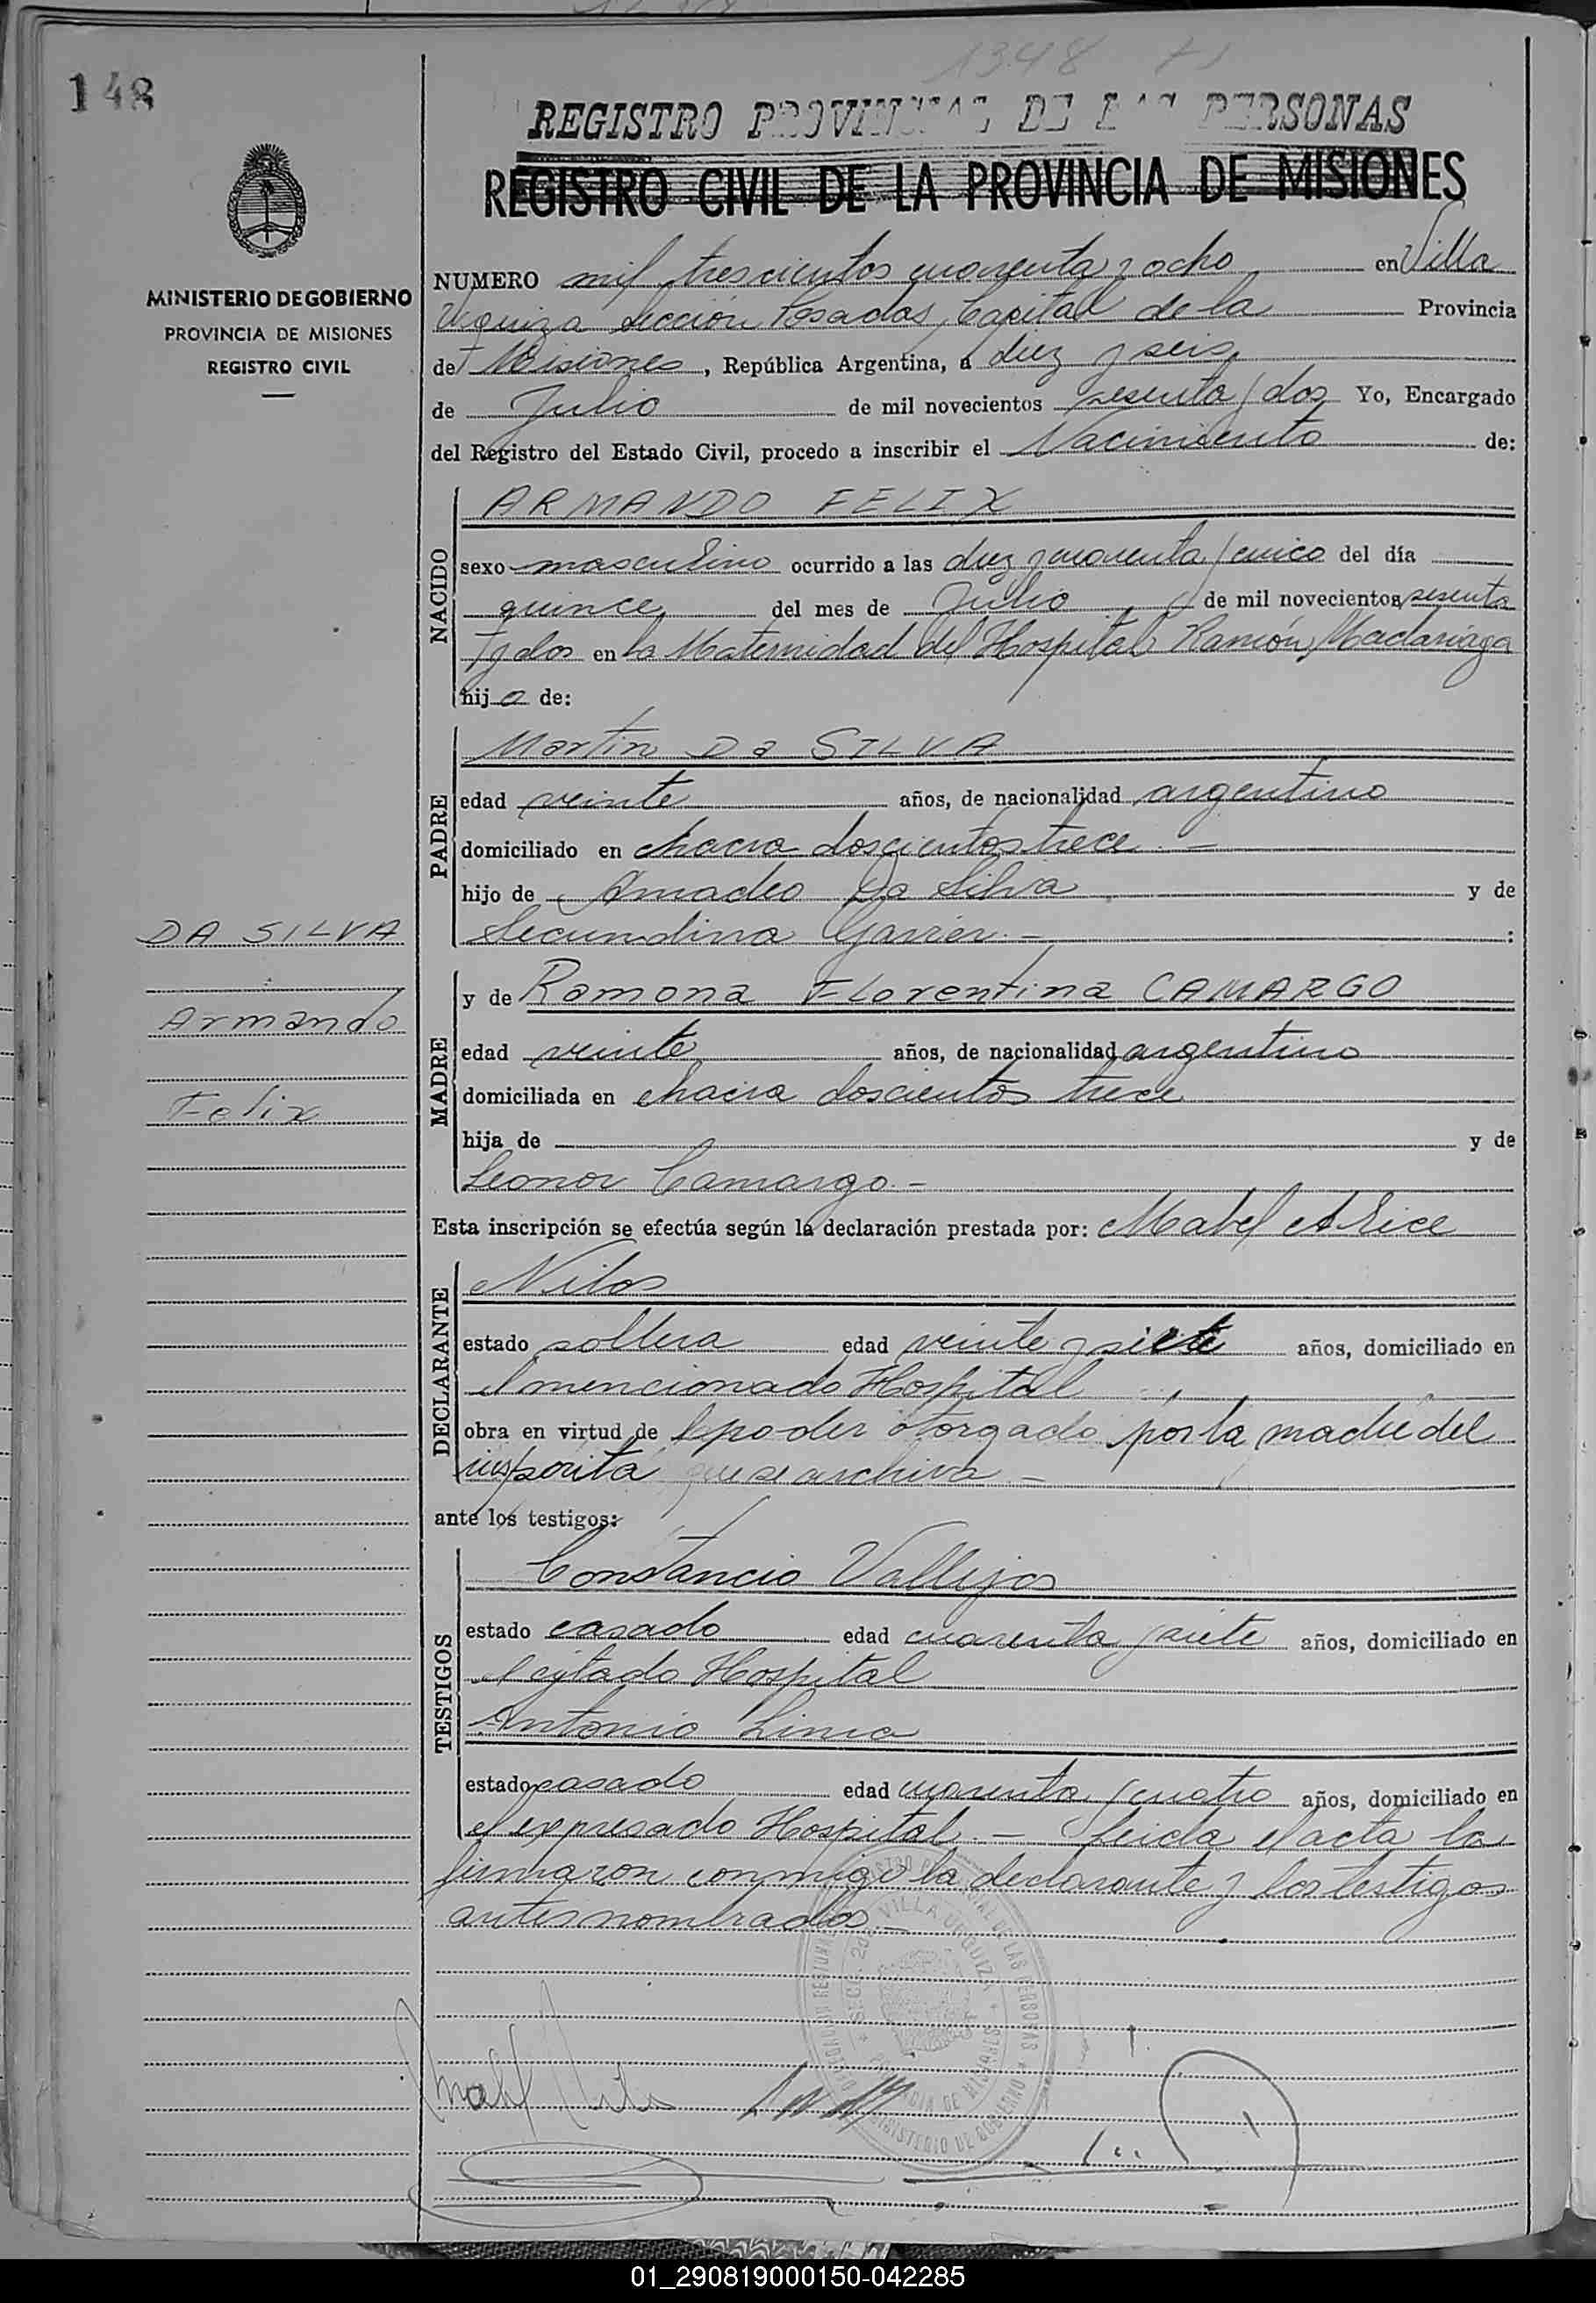 148
1348
REGISTRO PROVINCIAL DE LAS PERSONAS
REGISTRO CIVIL DE LA PROVINCIA DE MISIONES
MINISTERIO DE GOBIERNO
PROVINCIA DE MISIONES
REGISTRO CIVIL
NUMERO mil trescientos cuarenta y ocho en Villa
Urquiza Sección Posadas, Capital de la Provincia
de Misiones, República Argentina, a diez y seis
de Julio de mil novecientos sesenta y dos Yo, Encargado
del Registro del Estado Civil, procedo a inscribir el Nacimiento de:
NACIDO
ARMANDO FELIX
sexo masculino ocurrido a las diez y cuarenta y cinco del día
quince del mes de Julio de mil novecientos sesenta
y dos en la Maternidad del Hospital Ramón Madariaga
hijo de:
PADRE
Martin Da SILVA
edad veinte años, de nacionalidad argentino
domiciliado en chacra doscientos trece.-
hijo de Amadeo Da Silva y de
Secundina :
DA SILVA
Armando
Felix
MADRE
y de Ramona Florentina CAMARGO
edad veinte años, de nacionalidad argentina
domiciliada en chacra doscientos trece
hija de y de
Leonor Camargo.-
Esta inscripción se efectúa según la declaración prestada por: Mabel Alice
DECLARANTE
Nilos
estado soltera edad veinte y siete años, domiciliado en
el mencionado Hospital
obra en virtud de el poder otorgado por la madre del
que se archiva.-
ante los testigos:
TESTIGOS
Constancio Vallejos
estado casado edad cuarenta y siete años, domiciliado en
el citado Hospital
Antonio Lima
estado casado edad cuarenta y cuatro años, domiciliado en
el expresado Hospital.- Leida el acta la
firmaron conmigo la declarante y los testigos
antes nombrados.-
VILLA URQUIZA
MINISTERIO DE GOBIERNO
01_290819000150-042285